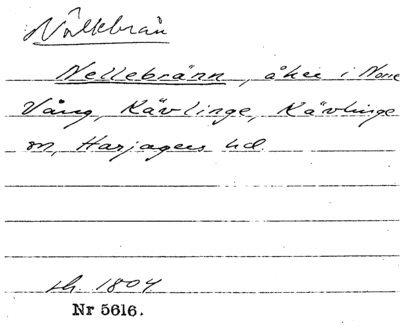 Nälkebrän
Nellebränn, åker i Norre
Vång, Kävlinge, Kävlinge
sn, Harjagers hd.
sk. 1804
Nr 5616.